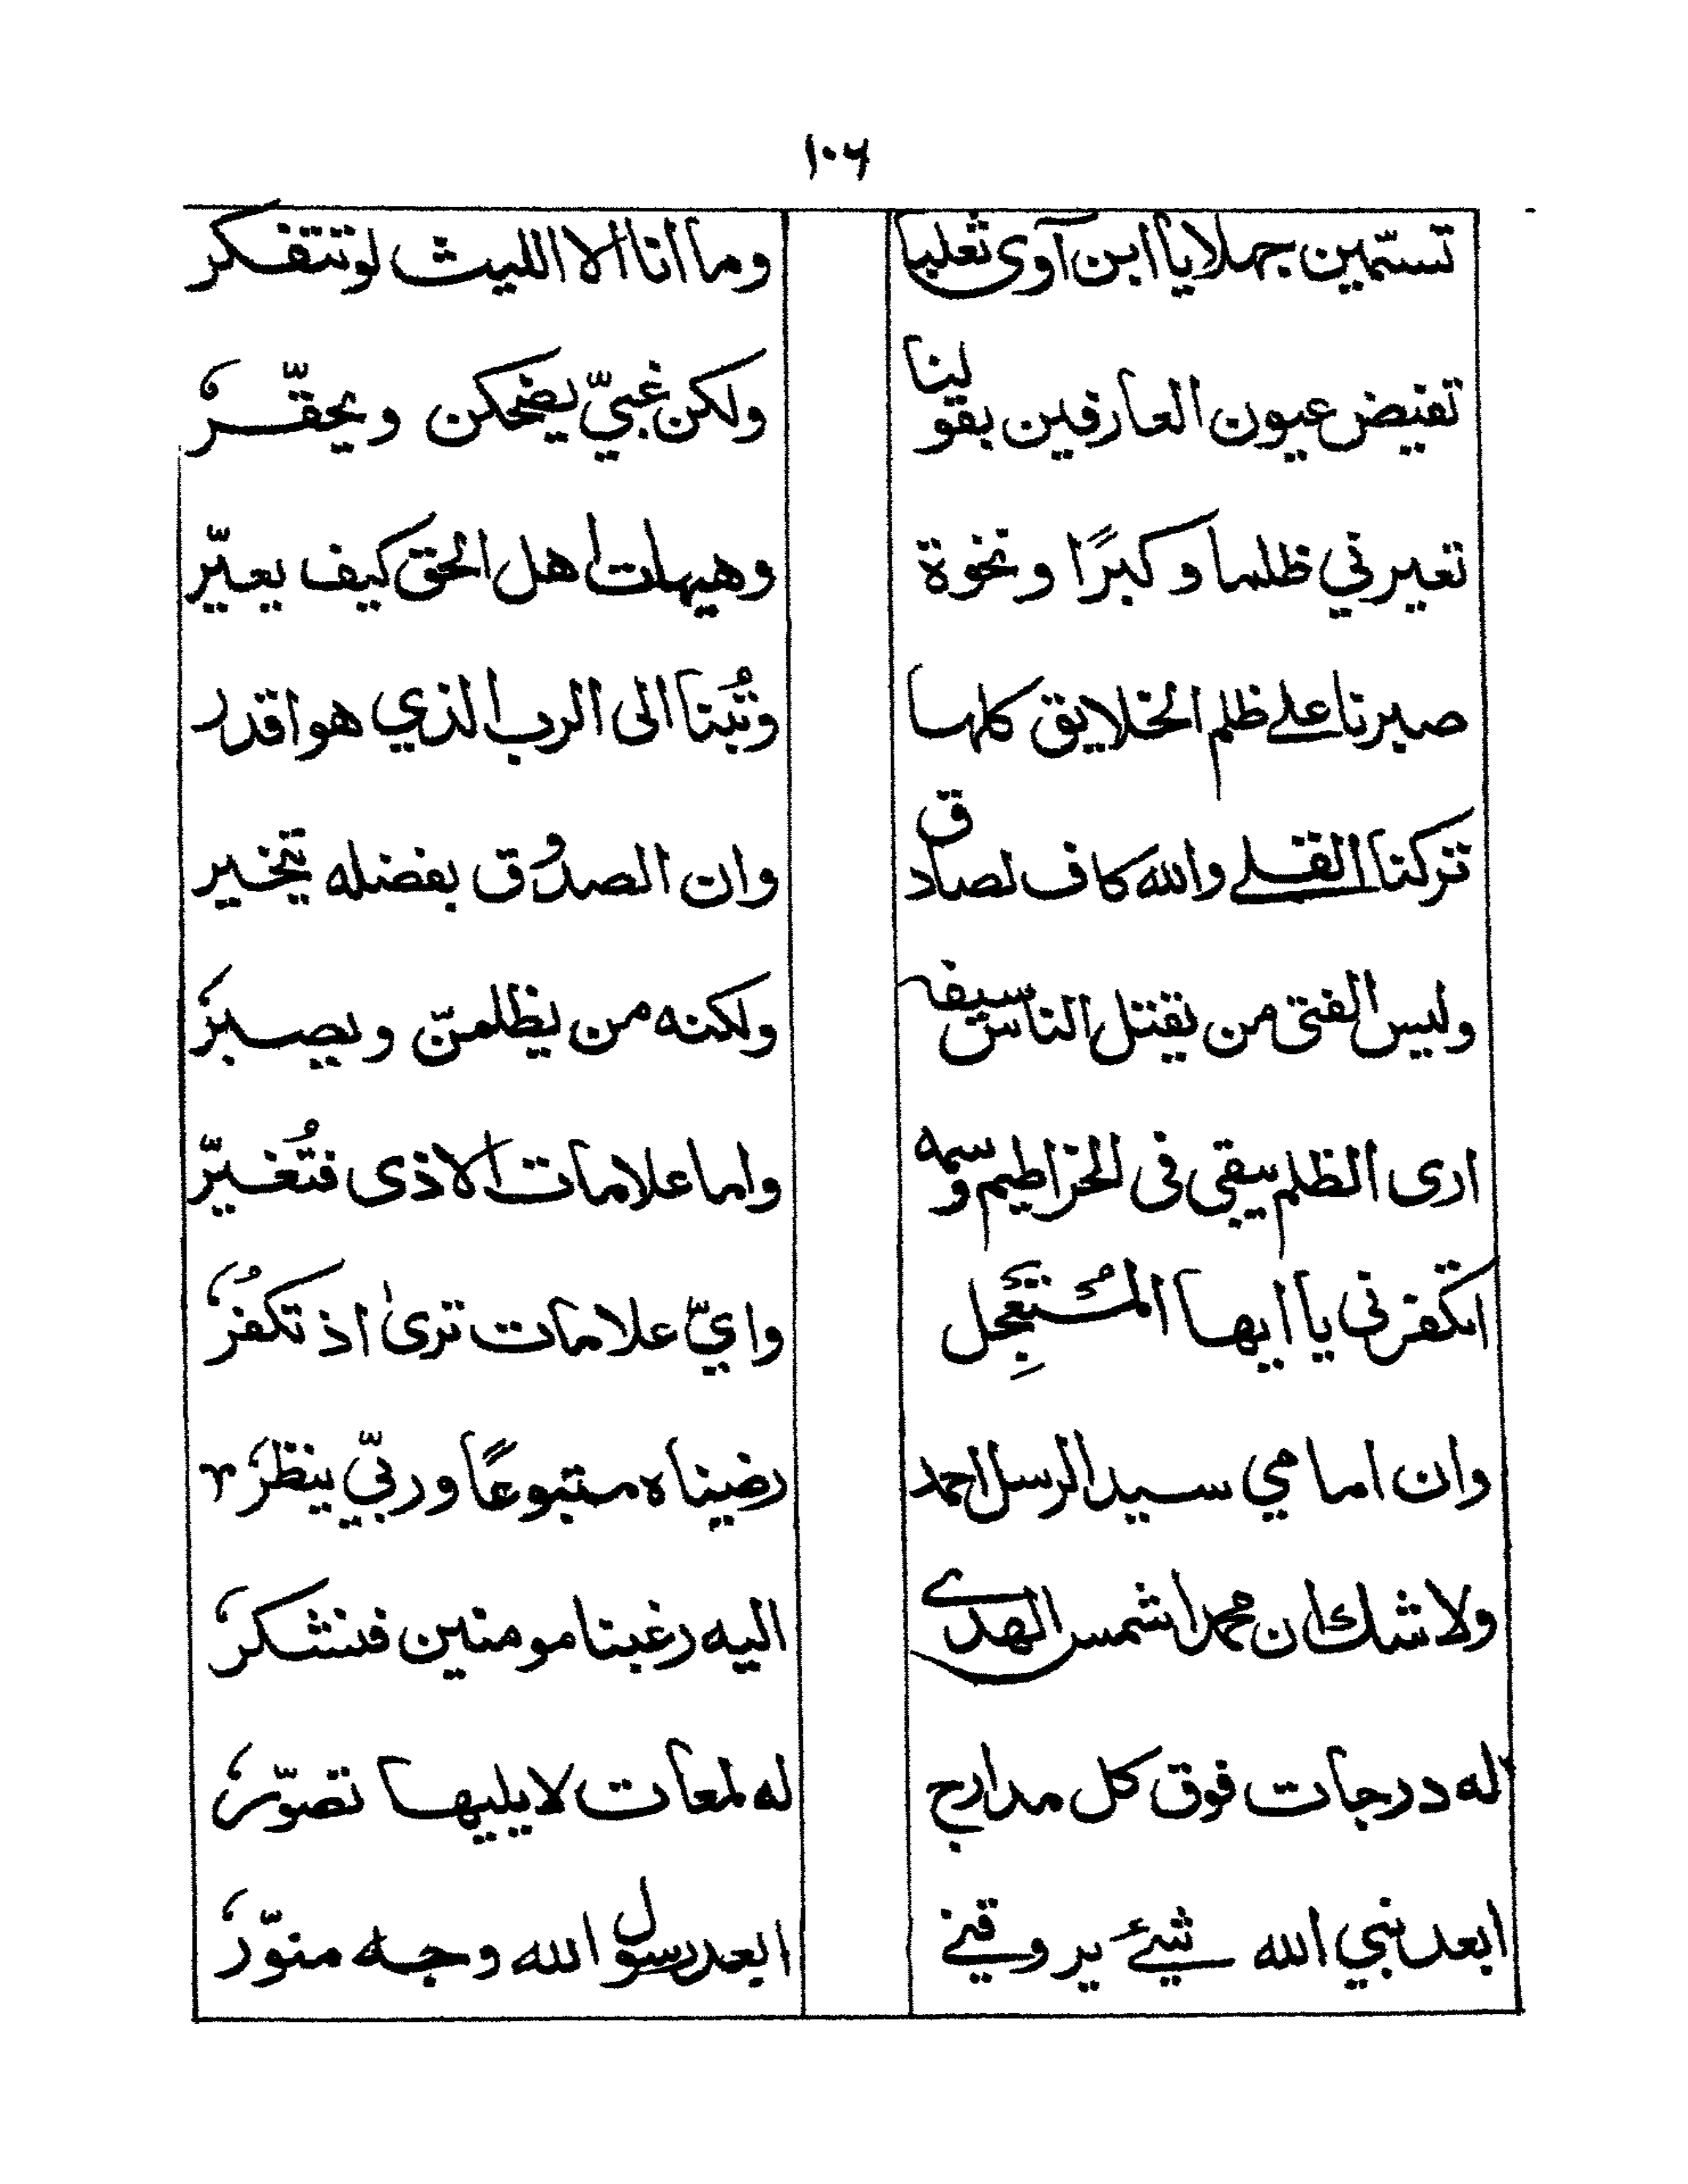 ١٠٦
تستهين جهلا يا ابن آوى ثعلبا وما انا الا الليث لو تتفكر
تفيض عيون العارفين بقولنا ولكن غبيّ يضحكن ويحقّر
تعيرني ظلما وكبرًا ونخوة وهيهات اهل الحق كيف يعيّر
صبرنا على ظلم الخلايق كلها وتُبنا الى الرب الذي هو اقدر
تركنا القلى والله كاف لصادق وان الصدوق بفضله يتخير
وليس الفتى من يقتل الناس سيفه ولكنه من يظلمنّ ويصبر
ارى الظلم يبقى فى الخراطيم وسمه واما علامات الاذى فتُغيّر
اتكفرني يا ايها المُستَعجِل وايّ علامات ترىٰ اذ تكفرُ
وان امامي سيد الرسل احمد رضيناه متبوعًا وربّي ينظر
ولا شك ان محمدا شمس الهدى اليه رغبنا مومنين فنشكر
له درجات فوق كل مدارج له لمعات لا يليها تصوّر
ابعد نبي الله شيء يروقني ابعد رسول الله وجه منوّر